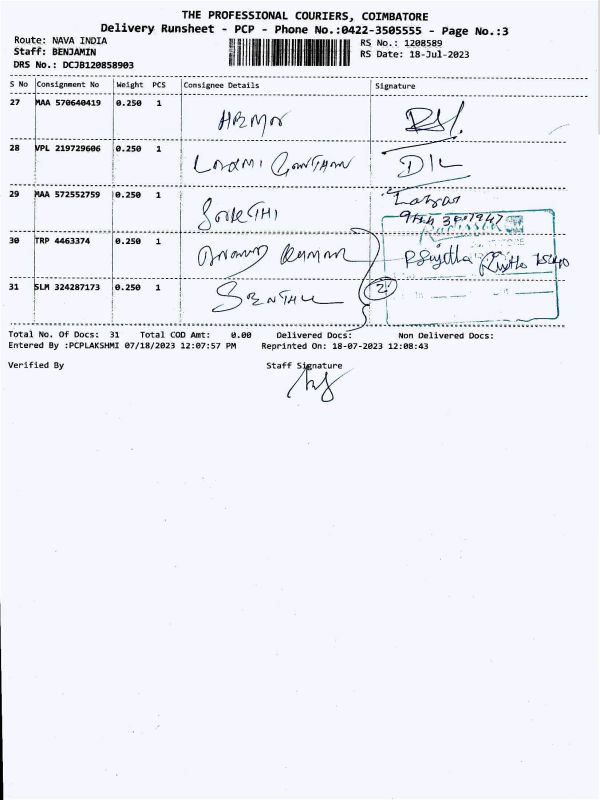 THE PROFESSIONAL COURIERS, COIMBATORE
Delivery Runsheet - PCP - Phone No.:0422-3505555 - Page No.:3
Route: NAVA INDIA
Staff: BENJAMIN
DRS No.: DCJB120858903
RS No.: 1208589
RS Date: 18-Jul-2023
S No Consignment No Weight PCS Consignee Details Signature
27 MAA 570640419 0.250 1
28 VPL 219729606 0.250 1 DIL
29 MAA 572552759 0.250 1
30 TRP 4463374 0.250 1 Kumar
31 SLM 324287173 0.250 1 2
Total No. Of Docs: 31 Total COD Amt: 0.00 Delivered Docs: Non Delivered Docs:
Entered By :PCPLAKSHMI 07/18/2023 12:07:57 PM Reprinted On: 18-07-2023 12:08:43
Verified By Staff Signature